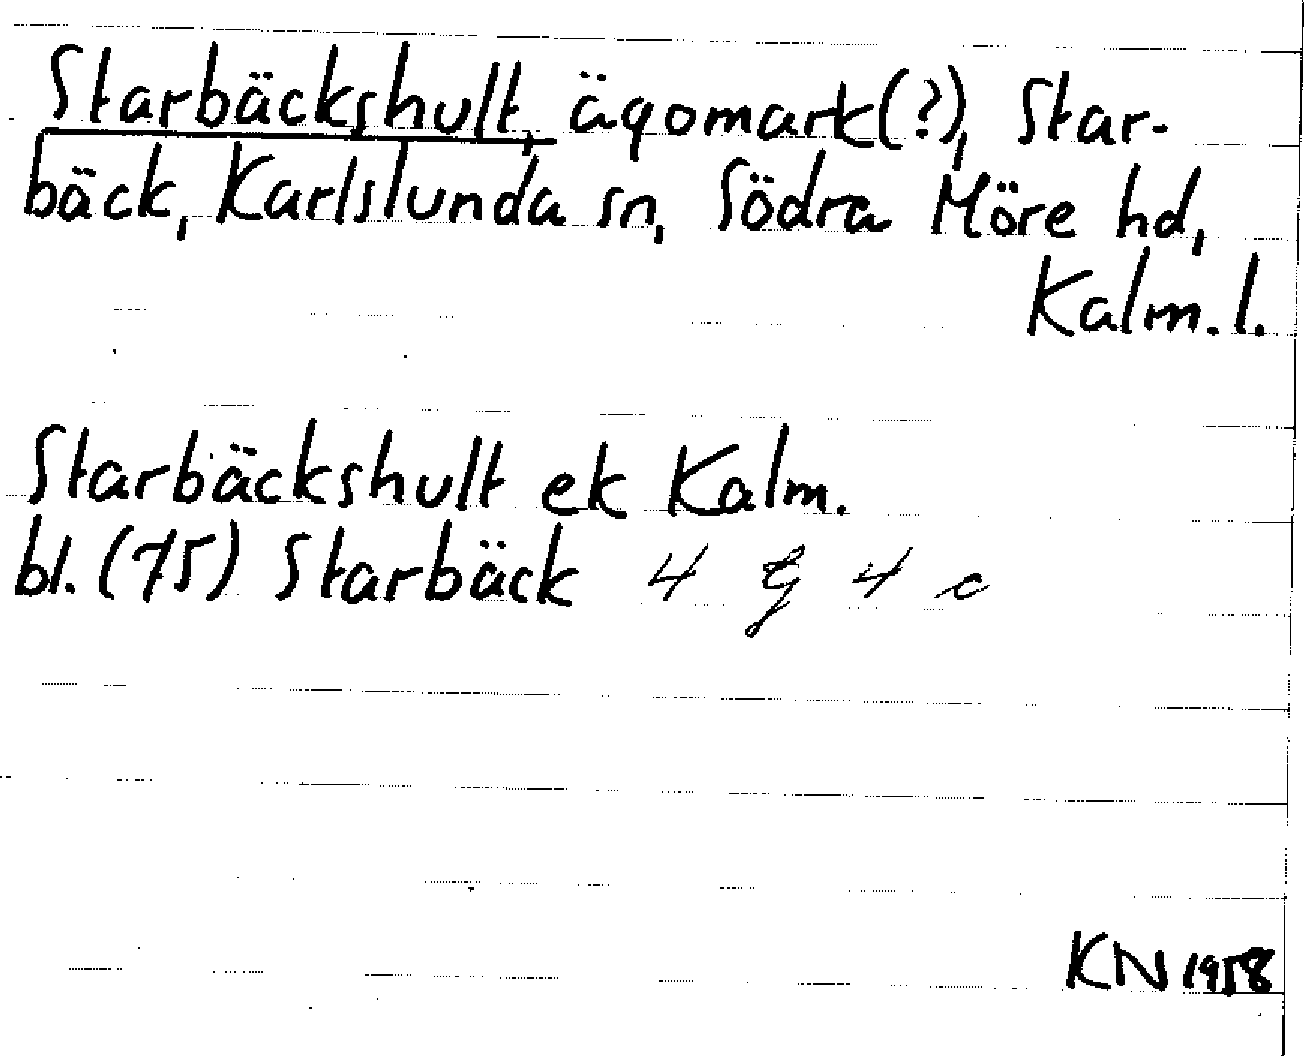 Starbäckshult, ägomark(?), Star-
bäck, Karlslunda sn, Södra Möre hd,
Kalm. l.
Starbäckshult ek Kalm.
bl. (75) Starbäck 4 G 4 c
KN 1958